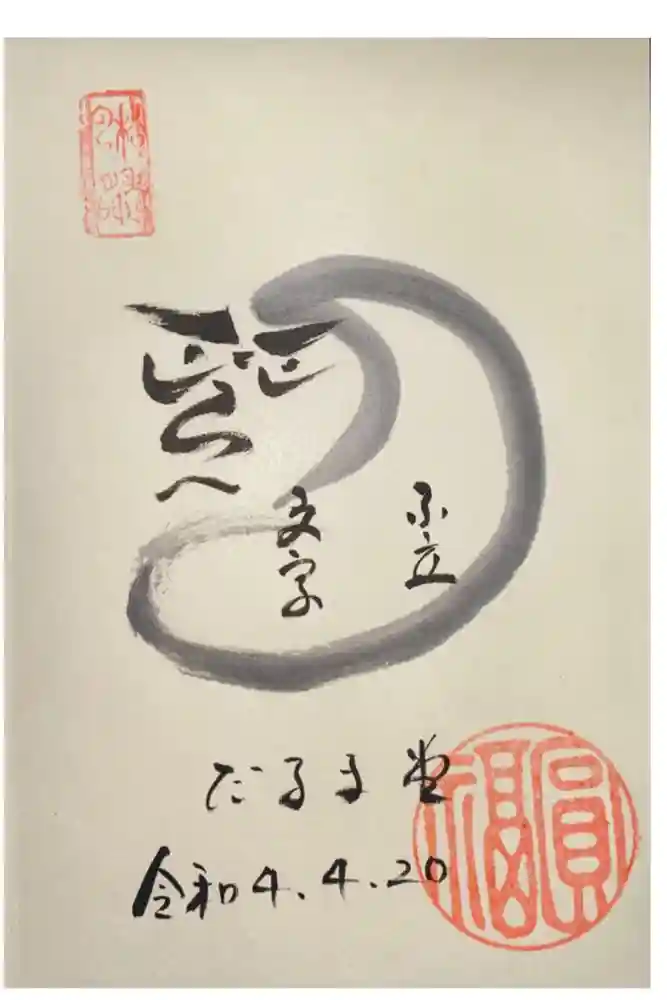 不立
文字
だるま堂
令和4.4.20
圓福